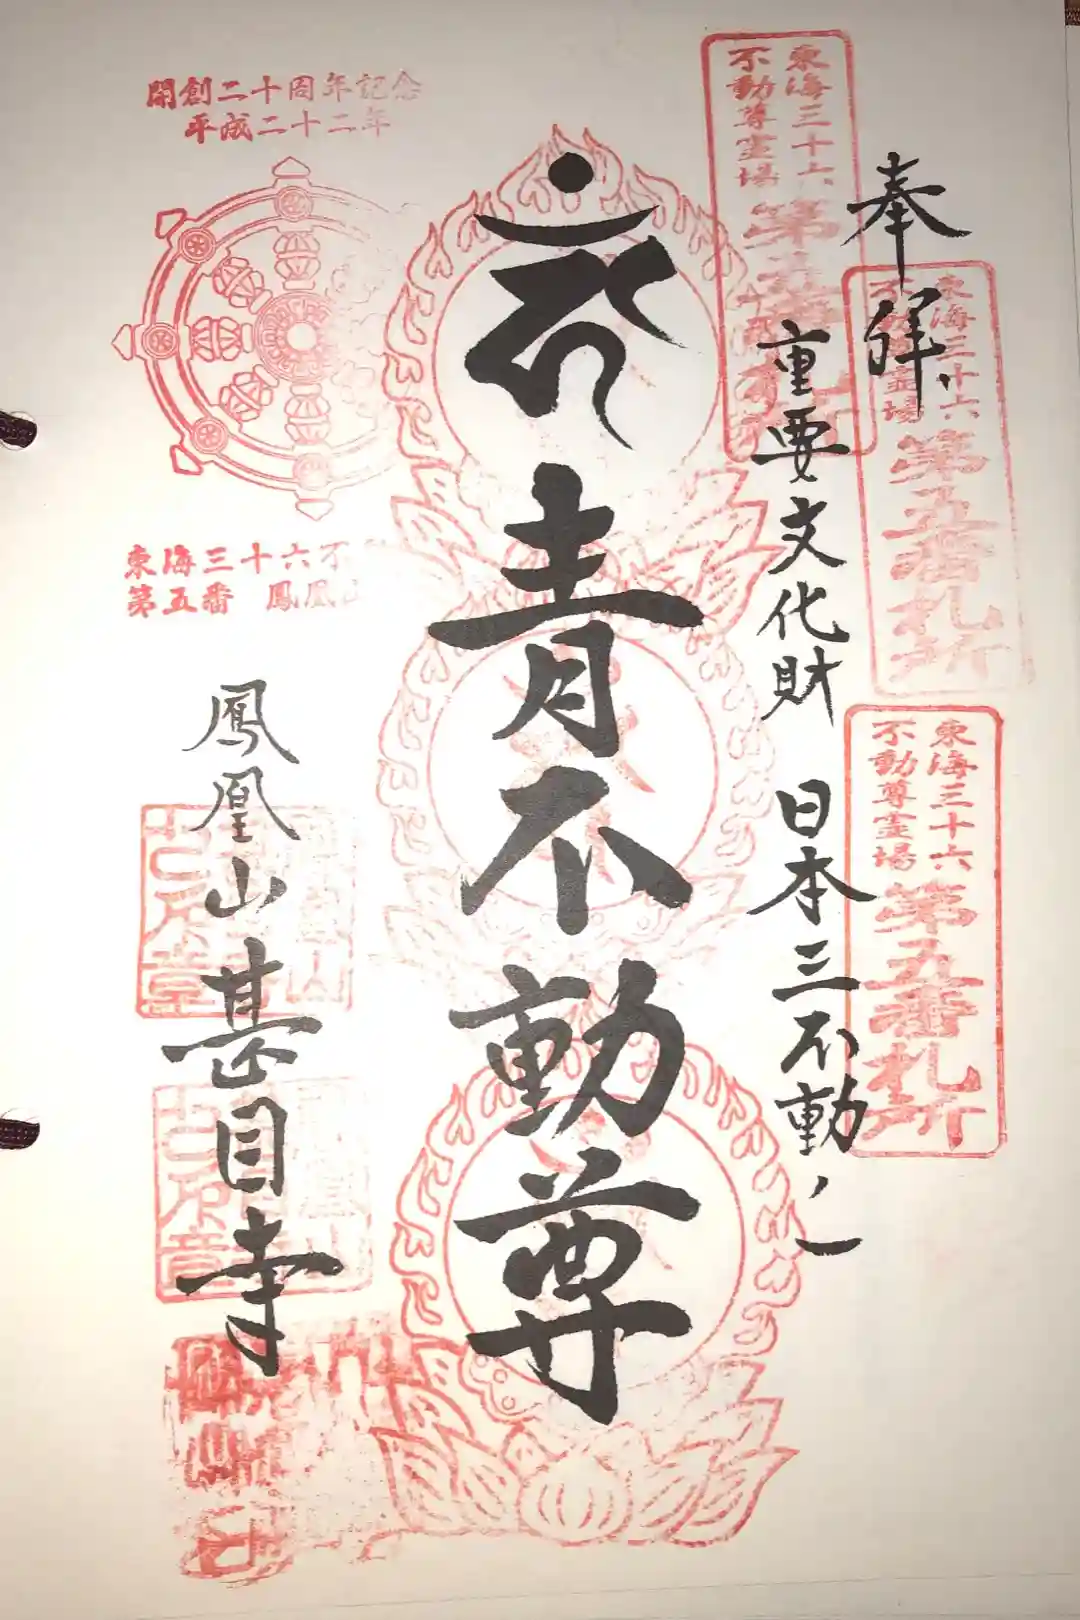 奉拝
重要文化財 日本三不動ノ一
青不動尊
鳳凰山甚目寺
東海三十六
不動尊霊場
第五番札所
東海三十六
不動尊霊場
第五番札所
東海三十六
不動尊霊場
第五番札所
開創二十周年記念
平成二十二年
東海三十六不
第五番 鳳凰